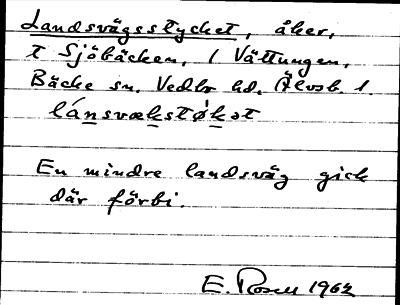 Landsvägsstycket, åker,
t Sjöbäcken, 1 Vättungen,
Bäcke sn. Vedbo hd. Älvsb. l.
lánsvækstø̀kət
En mindre landsväg gick
där förbi.
E. Rosell 1962